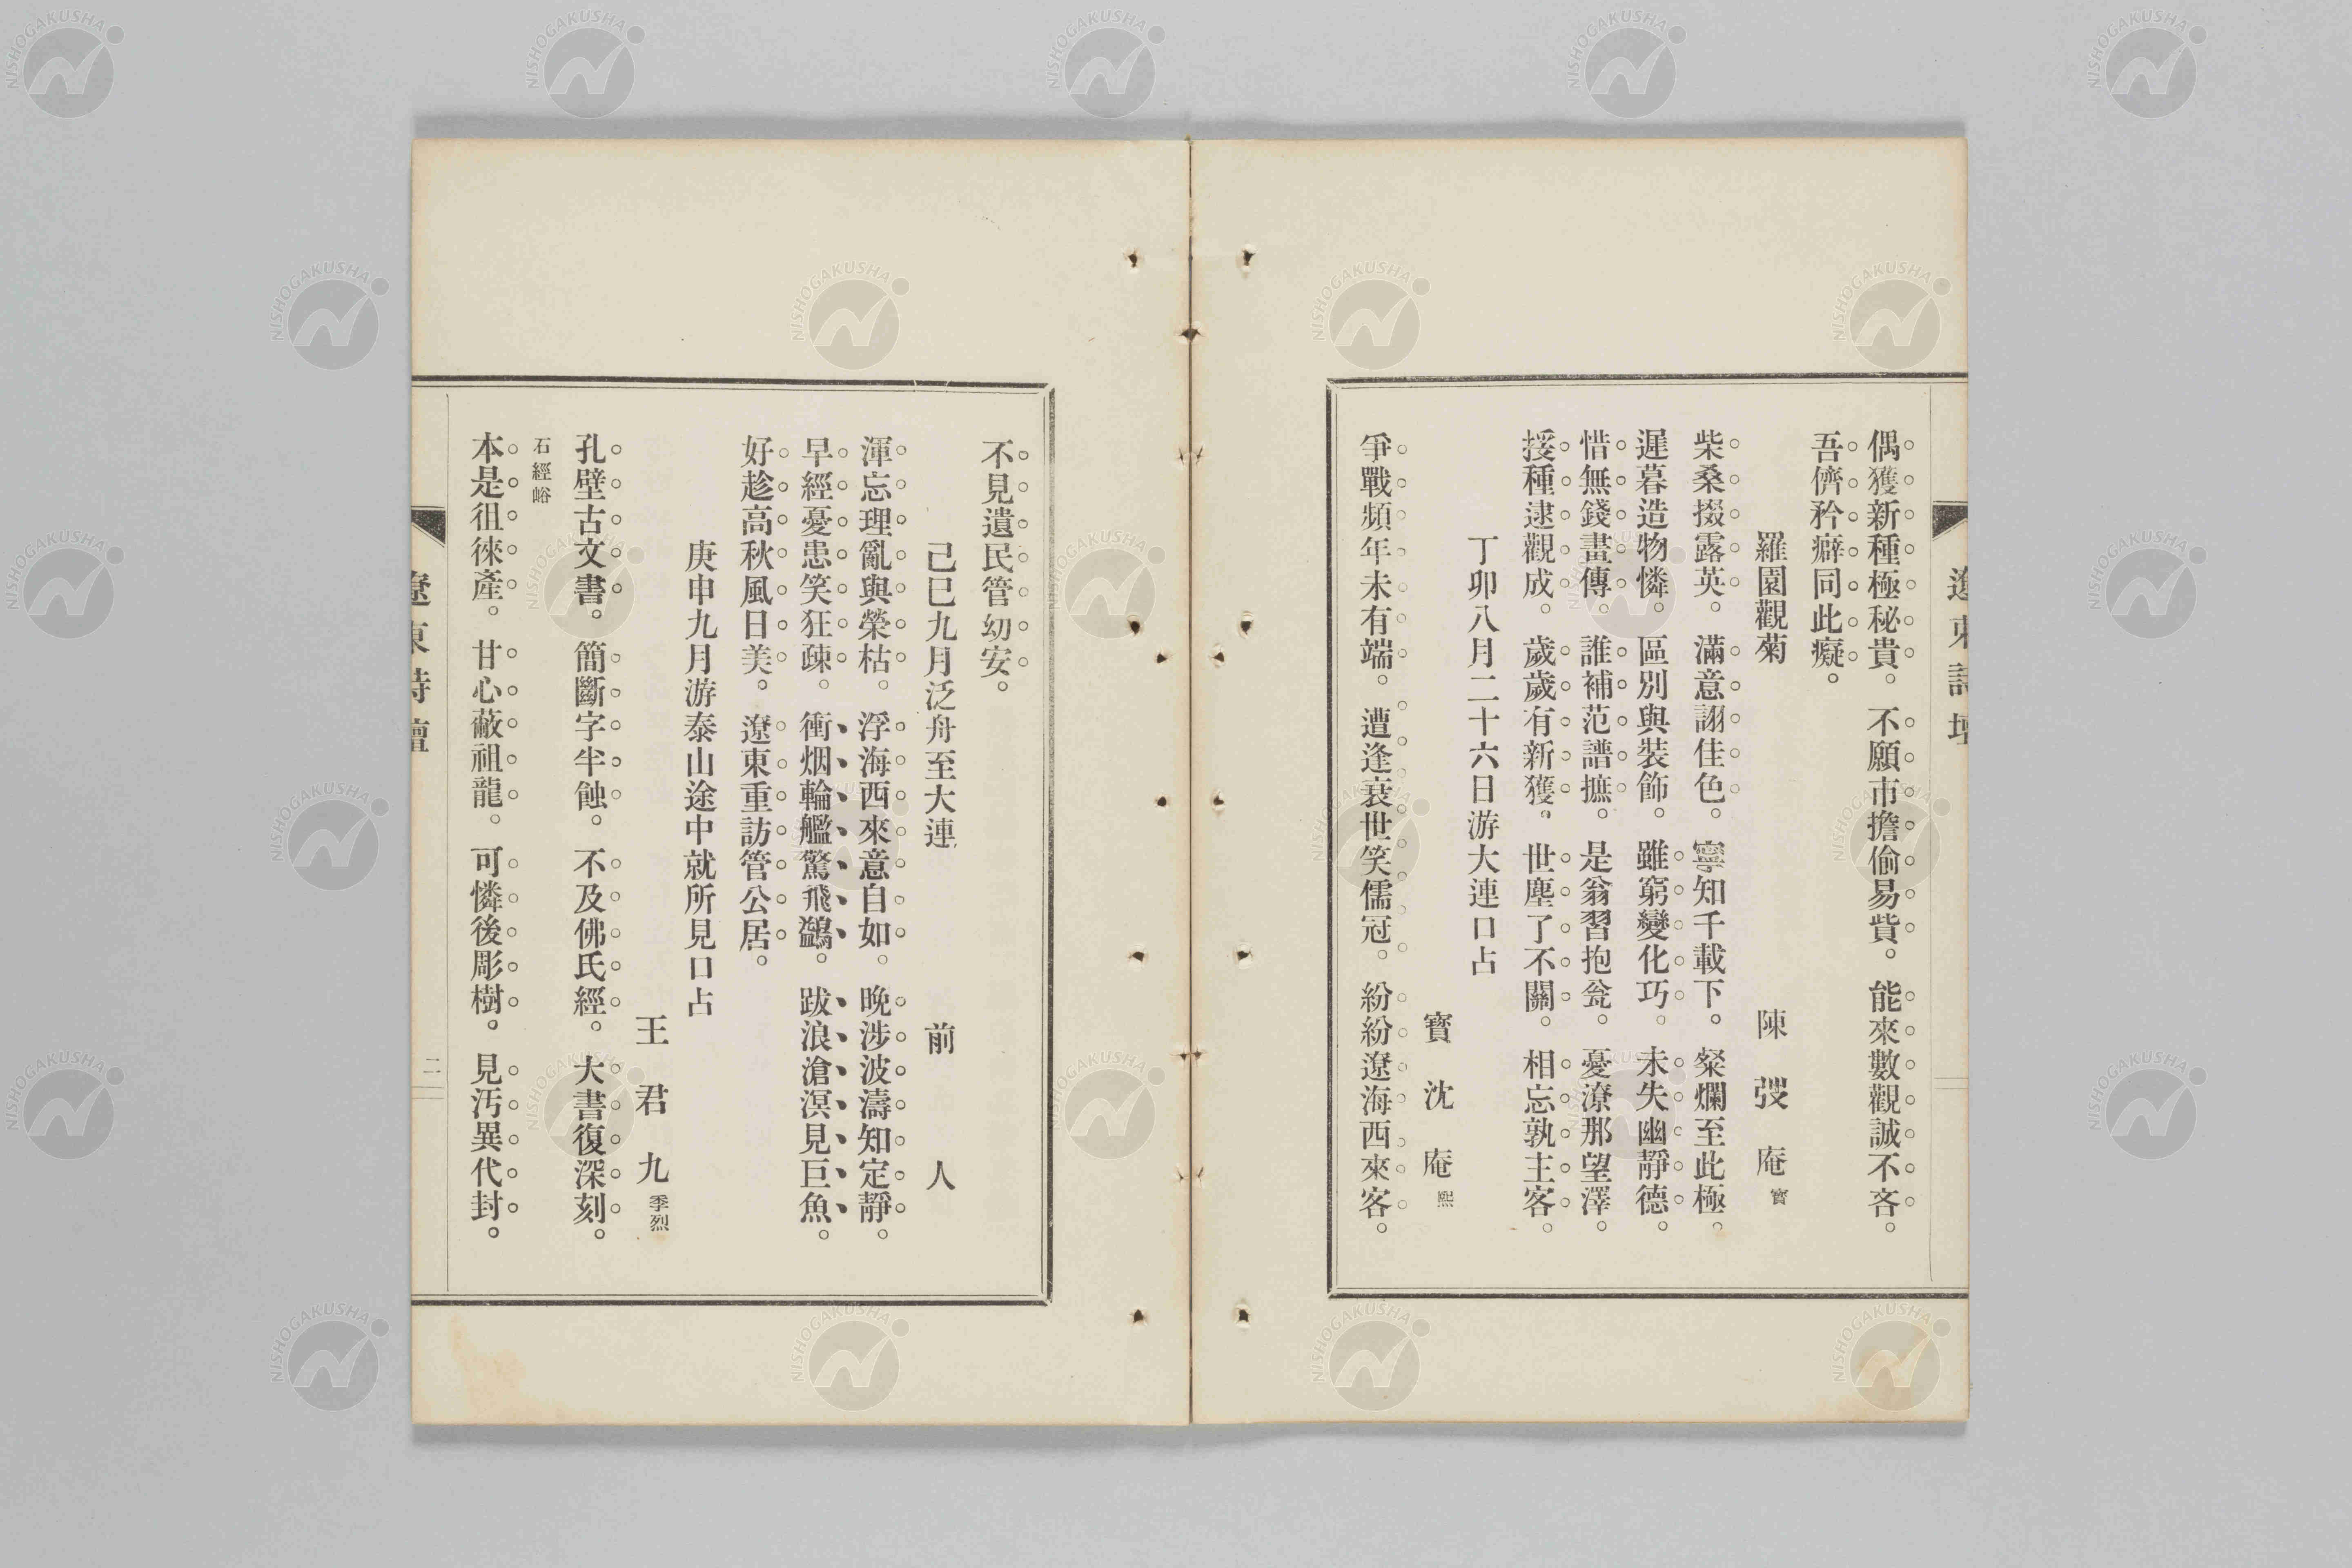 偶獲新種極秘貴。不願市擔偷易貲。能來數觀誠不吝。
吾儕矜癖同此癡。
羅園觀菊　陳弢庵寶
柴桑掇露英。滿意詡佳色。寧知千載下。粲爛至此極。
遲暮造物憐。區別與裝飾。雖窮變化巧。未失幽靜德。
惜無錢畫傳。誰補范譜摭。是翁習抱瓮。憂潦那望澤。
挼種逮觀成。歲歲有新獲。世塵了不關。相忘孰主客。
丁卯八月二十六日游大連口占
寶沈庵熙
爭戰頻年未有端。遭逢衰世笑儒冠。紛紛遼海西來客。
遼東詩壇
不見遺民管幼安。
己巳九月泛舟至大連　前人
渾忘理亂與榮枯。浮海西來意自如。晚涉波濤知定靜。
早經憂患笑狂疎。衝烟輪艦驚飛鷁。跋浪滄溟見巨魚。
好趁高秋風日美。遼東重訪管公居。
庚申九月游泰山途中就所見口占
王君九季烈
孔壁古文書。簡斷字半蝕。不及佛氏經。大書復深刻。
石經峪
本是徂徠產。甘心蔽祖龍。可憐後彫樹。見汚異代封。
遼東詩壇
二
NISHOGAKUSHA